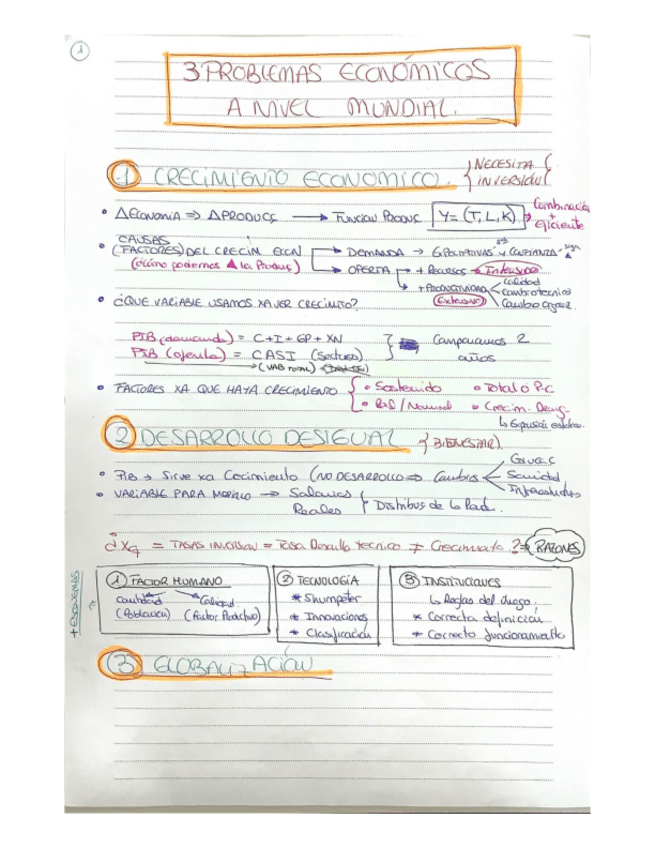 1
3 PROBLEMAS ECONÓMICOS
A NIVEL MUNDIAL.
1 CRECIMIENTO ECONOMICO. NECESITA
INVERSION
• ΔECONOMIA => ΔPRODUCC → FUNCION PRODUC Y= (T, L, K) Combinación
+
eficiente
CAUSAS
• (FACTORES) DEL CRECIM. ECON → DEMANDA → EXPECTATIVAS Y CONFIANZA
(¿cómo podemos ▲ la Produc?) → OPERTA → + RECURSOS → Intensivo
→ + PRODUCTIVIDAD calidad
Cambio técnico
(Extensivo)
• ¿QUE VARIABLE USAMOS XA VER CRECIMTO?
PIB (demanda) = C+I+GP+XN
PIB (oferta) = CASI (Sectores) Comparamos 2
años
→ (VAB
• FACTORES XA QUE HAYA CRECIMIENTO • Sostenido • Total o P.C
• Real / Nominal • Crecim. Demg.
2 DESARROLLO DESIGUAL {BIENESTAR).
• PIB → Sirve xa Crecimiento (NO DESARROLLO => Cambios
Sanidad
Infraestructuras
• VARIABLE PARA MEDIRLO → Salarios
Reales Distribuc de la Rend.
¿ Xq = TASAS INVERSION = Tasa Desarrollo tecnico ≠ Crecimiento ? => RAZONES
+ ESQUEMAS
1 FACTOR HUMANO
Cantidad Calidad
(Población) (Factor Productivo)
2 TECNOLOGIA
* Shumpeter
* Innovaciones
* Clasificación
3 INSTITUCIONES
↳ Reglas del Juego.
* Correcta definicion
* Correcto funcionamiento
3 GLOBALIZACIÓN